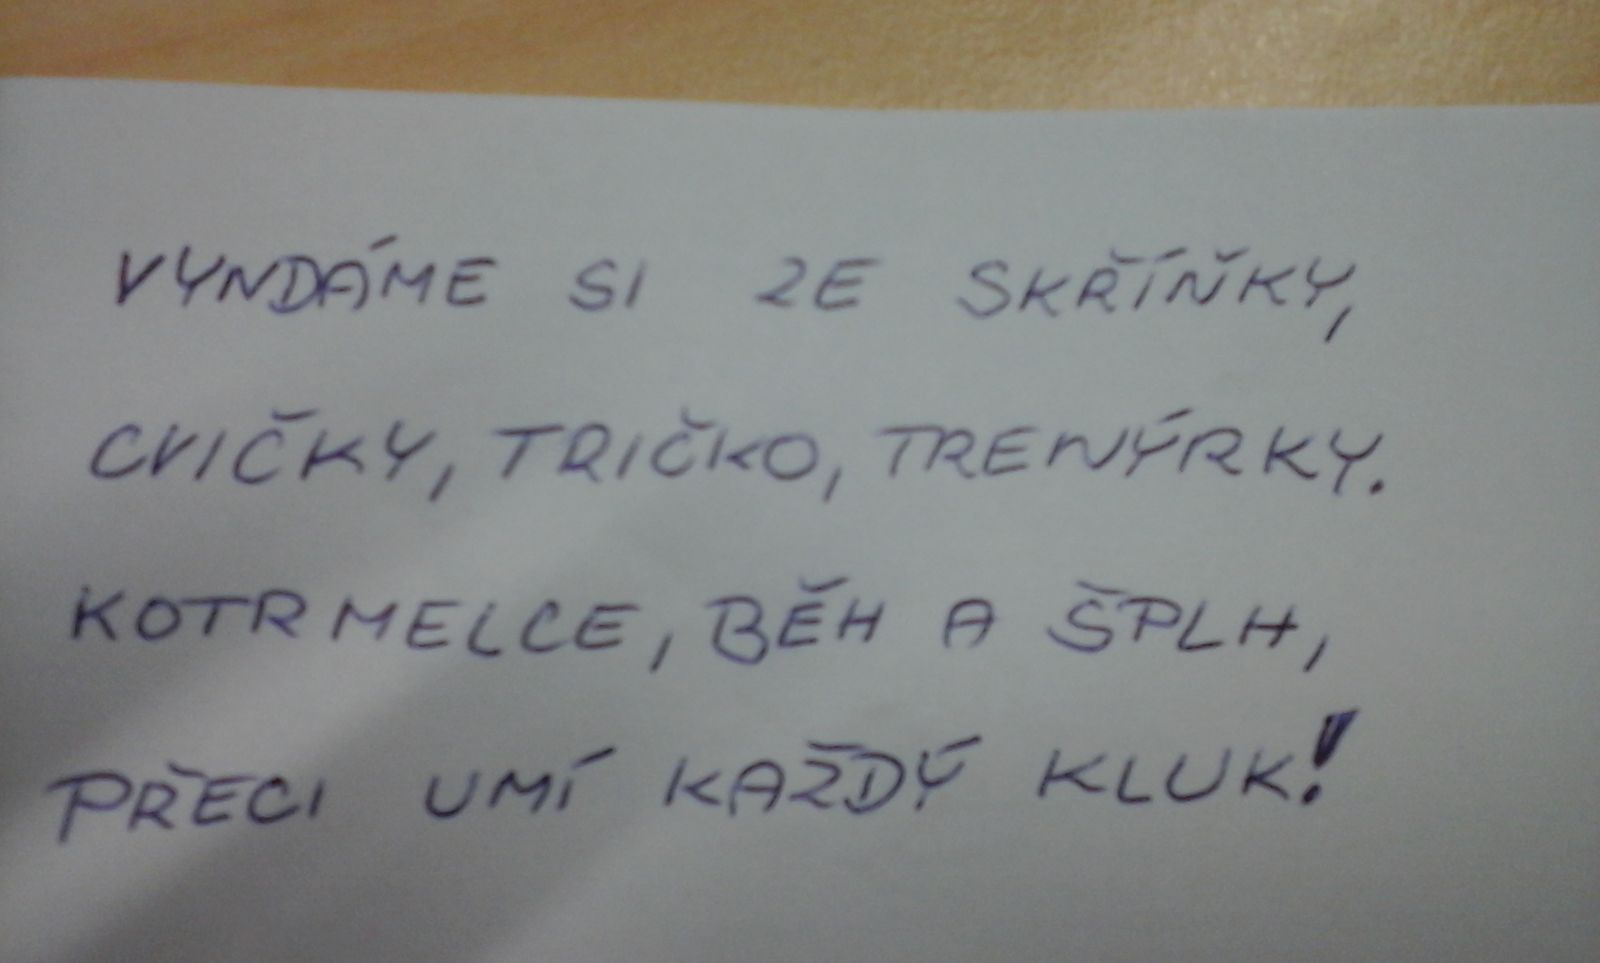 VYNDÁME SI ZE SKŘÍŇKY,
CVIČKY, TRIČKO, TRENÝRKY.
KOTRMELCE, BĚH A ŠPLH,
PŘECI UMÍ KAŽDÝ KLUK!